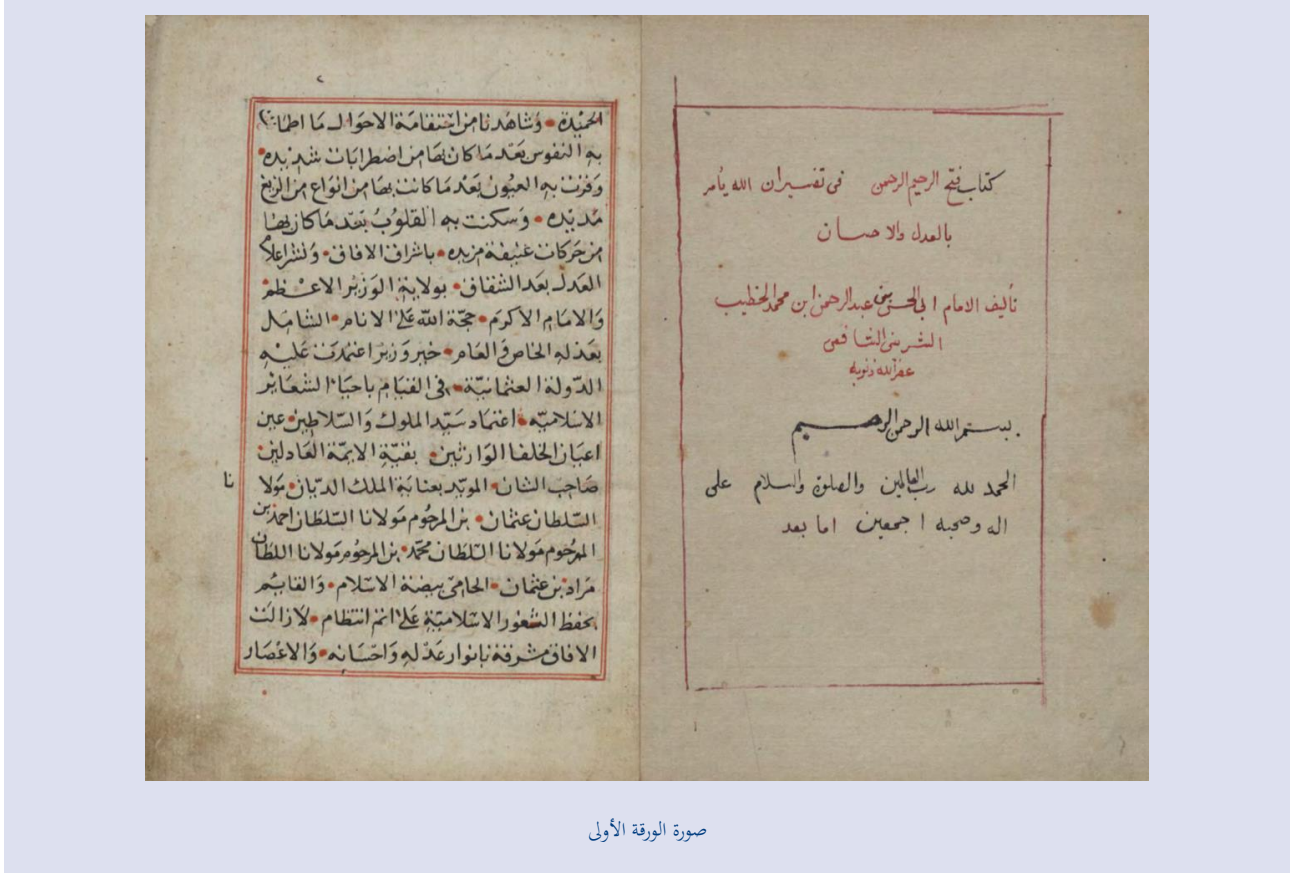 كتاب فتح الرحيم الرحمن في تفسير ان الله يأمر
بالعدل والاحسان
تأليف الامام ابي الحسن بن عبد الرحمن ابن محمد الخطيب
الشربيني الشافعي
غفر الله ذنوبه
بسم الله الرحمن الرحيم
الحمد لله رب العالمين والصلوة والسلام على
اله وصحبه اجمعين اما بعد
٢
الحميده وشاهدنا من استقامة الاحوال ما اطمانت
به النفوس بعد ما كان بها من اضطرابات شديده
وقرت به العيون بعد ما كانت بها من انواع من الزيغ
مديده وسكنت به القلوب بعد ما كان بها
من حركات عنيفة مزيده باشراق الافاق ونشر اعلام
العدل بعد الشقاق بولاية الوزير الاعظم
والامام الاكرم حجة الله على الانام الشامل
بعدله الخاص والعام خير وزير اعتمدت عليه
الدولة العثمانية في القيام باحياء الشعاير
الاسلاميه اعتماد سيد الملوك والسلاطين عين
اعيان الخلفا الوارثين بقية الايمة العادلين
صاحب الشان المويد بعناية الملك الديان مولانا
السلطان عثمان بن المرحوم مولانا السلطان احمد بن
المرحوم مولانا السلطان محمد بن المرحوم مولانا السلطان
مراد بن عثمان الحامي بيضة الاسلام والقايم
بحفظ الثغور الاسلامية على اتم انتظام لا زالت
الافاق مشرقة بانوار عدله واحسانه والاعصار
صورة الورقة الأولى